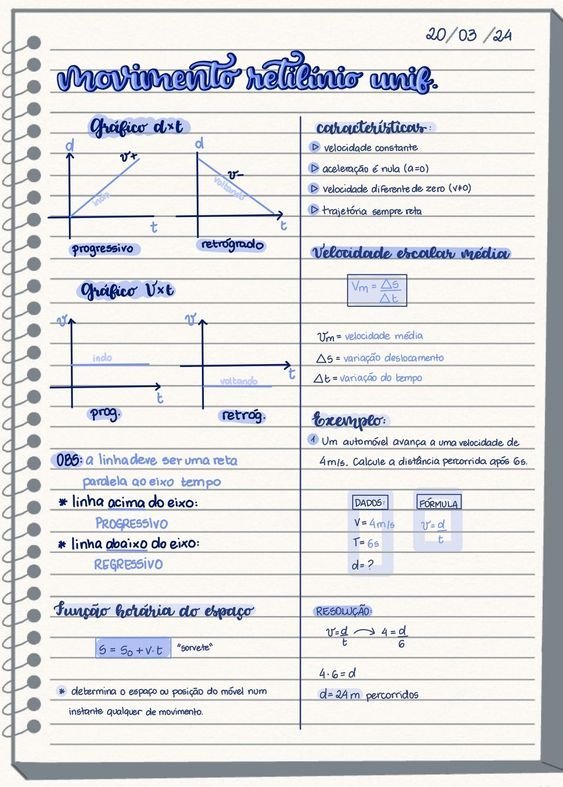 20/03/24
movimento retilínio unif.
Gráfico d×t
d
v+
indo
t
progressivo
d
v-
voltando
t
retrógrado
Gráfico V×t
v
indo
t
prog.
v
voltando
t
retróg.
OBS: a linha deve ser uma reta
paralela ao eixo tempo
* linha acima do eixo:
PROGRESSIVO
* linha abaixo do eixo:
REGRESSIVO
Função horária do espaço
S = S₀ + v · t "sorvete"
* determina o espaço ou posição do móvel num
instante qualquer de movimento.
características:
▷ velocidade constante
▷ aceleração é nula (a=0)
▷ velocidade diferente de zero (v≠0)
▷ trajetória sempre reta
Velocidade escalar média
Vm = Δs
Δt
Vm = velocidade média
Δs = variação deslocamento
Δt = variação do tempo
Exemplo:
1 Um automóvel avança a uma velocidade de
4m/s. Calcule a distância percorrida após 6s.
DADOS:
V = 4m/s
T = 6s
d = ?
FÓRMULA
v = d
t
RESOLUÇÃO:
v = d → 4 = d
t 6
4 · 6 = d
d = 24 m percorridos